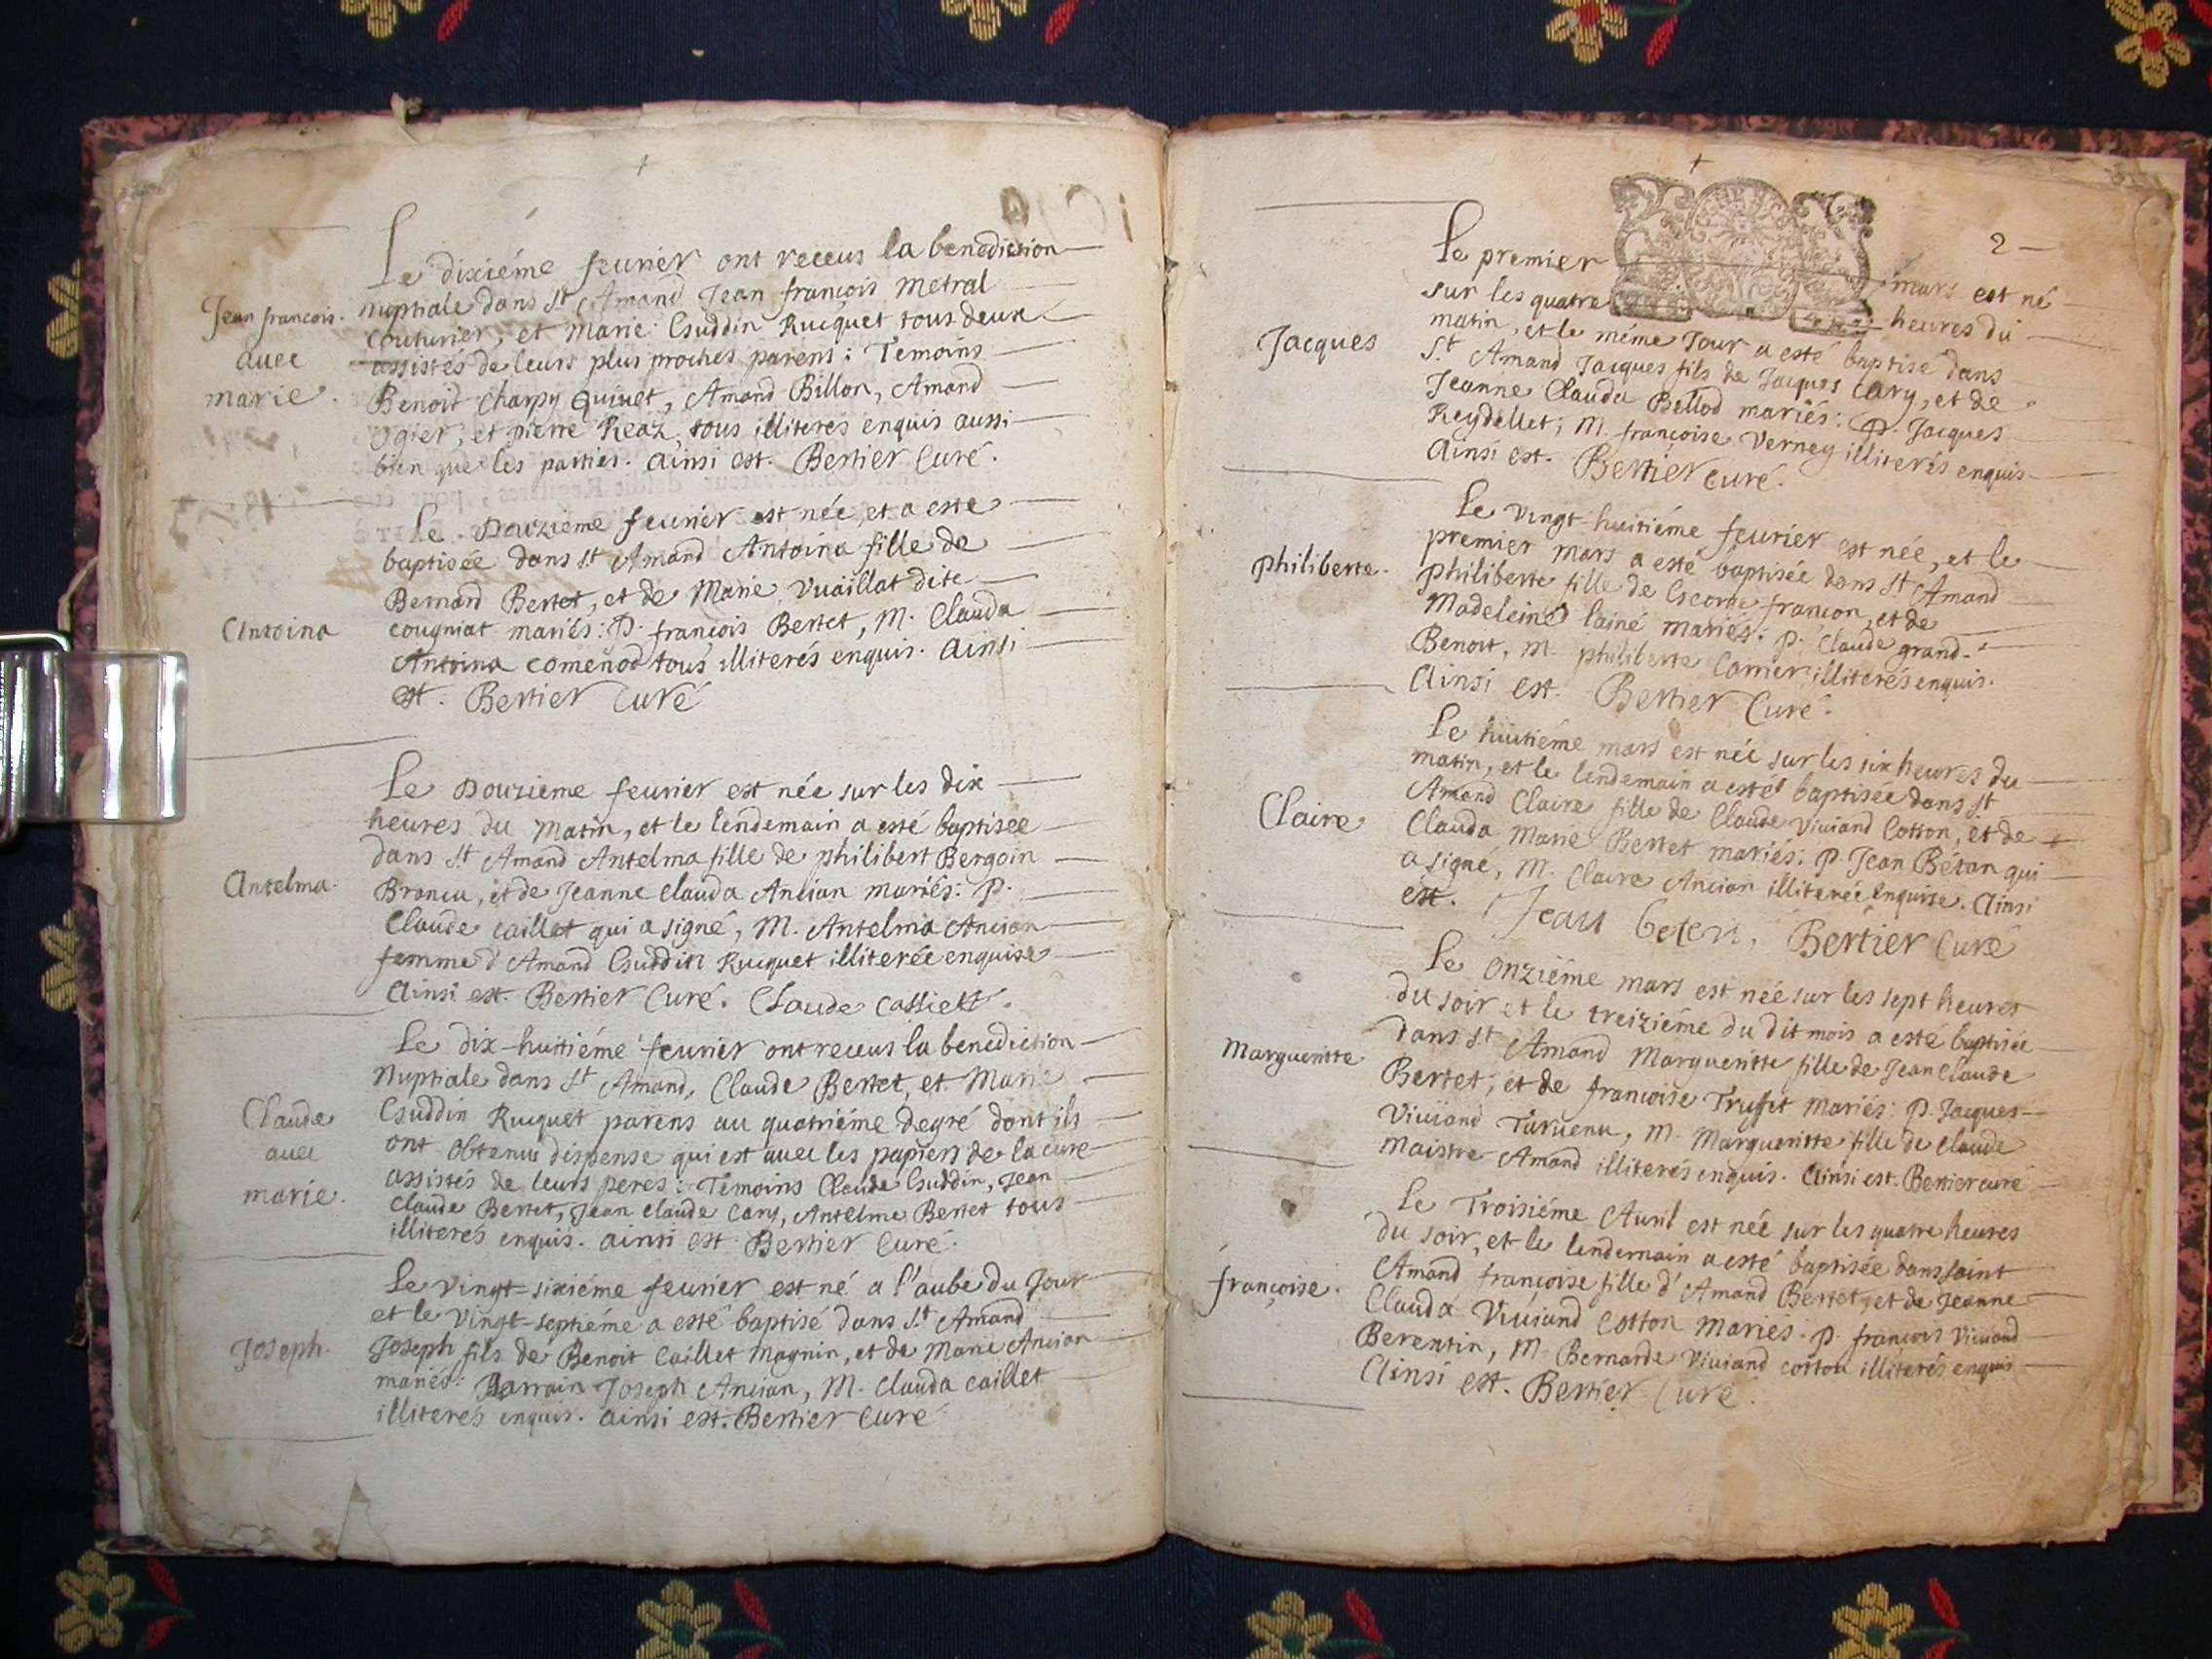 Le dixiéme feurier ont receus la benediction
Jean francois. nuptiale dans St Amand Jean françois metral
couturier, et Marie Guddin Rucquet tous deux
auec assistés de leurs plus proches parens: Temoins
marie. Benoit charpy Quinet, Amand Billon, Amand
Ogier, et pierre Reaz, tous illiterés enquis aussi
bien que les parties. ainsi est. Bertier Curé.
Le Douziéme feurier est née, et a esté
baptisée dans St Amand Antoina fille de
Bernard Bertet, et de Marie Vuaillat dite
Antoina cougniat mariés: P. francois Bertet, M. Clauda
Antoina comenod tous illiterés enquis. Ainsi
est. Bertier Curé
Le Douzieme feurier est née sur les dix
heures du matin, et le lendemain a esté baptisée
dans St Amand Antelma fille de philibert Bergoin
Antelma. Brancu, et de Jeanne Clauda Ancian mariés: P.
Claude caillet qui a signé, M. Antelma Ancian
femme d'Amand Guddin Rucquet illiterée enquise
Ainsi est. Bertier Curé. Claude
Le dix-huitiéme feurier ont receus la benediction
Nuptiale dans St Amand, Claude Bertet, et Marie
Claude Guddin Rucquet parens au quatriéme degré dont ils
auec ont obtenus dispense qui est auec les papiers de la cure
marie. assistés de leurs peres: Temoins Claude Guddin, Jean
Claude Bertet, Jean Claude Cary, Antelme Bertet tous
illiterés enquis. ainsi est. Bertier Curé.
Le Vingt-sixiéme feurier est né a l'aube du Jour
et le Vingt-septiéme a esté baptisé dans St Amand
Joseph. Joseph fils de Benoit Caillet Magnin, et de Marie Ancian
mariés: Parrain Joseph Ancian, M. Clauda caillet
illiterés enquis. ainsi est. Bertier Curé
2
Le premier mars est né
sur les quatre heures du
Jacques matin, et le méme Jour a esté baptisé dans
St Amand Jacques fils de Jacques Cary, et de
Jeanne Clauda Bellod mariés: P. Jacques
Reydellet; M. françoise Verney illiterés enquis
Ainsi est. Bertier Curé.
Le Vingt-huitiéme feurier est née, et le
premier mars a esté baptisée dans St Amand
philiberte. philiberte fille de George françon, et de
Madeleine lainé mariés: P. Claude grand-
Benoit, M. philiberte Carrier illiterés enquis.
Ainsi est. Bertier Curé.
Le huitiéme mars est née sur les six heures du
matin, et le lendemain a esté baptisée dans St
Amand Claire fille de Claude Viuiand Cotton, et de
Claire Clauda Marie Bertet mariés: P. Jean Bétan qui
a signé, M. Claire Ancian illiterée enquise. Ainsi
est. Jean Bertier Curé
Le Onziéme mars est née sur les sept heures
du soir et le treiziéme du dit mois a esté baptisée
Margueritte dans St Amand Margueritte fille de Jean Claude
Bertet, et de francoise Truffet mariés: P. Jacques
Viuiand Taruenu, M. Margueritte fille de Claude
Maistre Amand illiterés enquis. Ainsi est. Bertier curé
Le Troisiéme Auril est née sur les quatre heures
du soir, et le lendemain a esté baptisée dans saint
françoise. Amand françoise fille d'Amand Bertet, et de Jeanne
Clauda Viuiand Cotton mariés. P. francois Viuiand
Berentin, M. Bernarde Viuiand cotton illiterés enquis
Ainsi est. Bertier Curé.